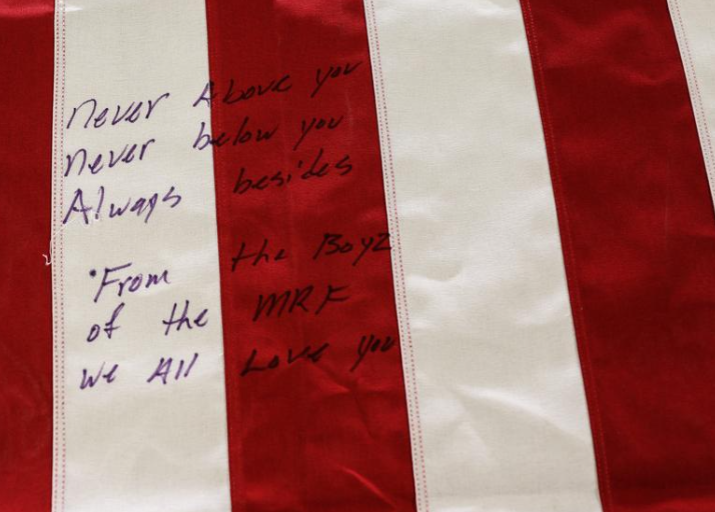 Never Above you
Never below you
Always besides
"From the Boyz
of the MRF
We All Love you